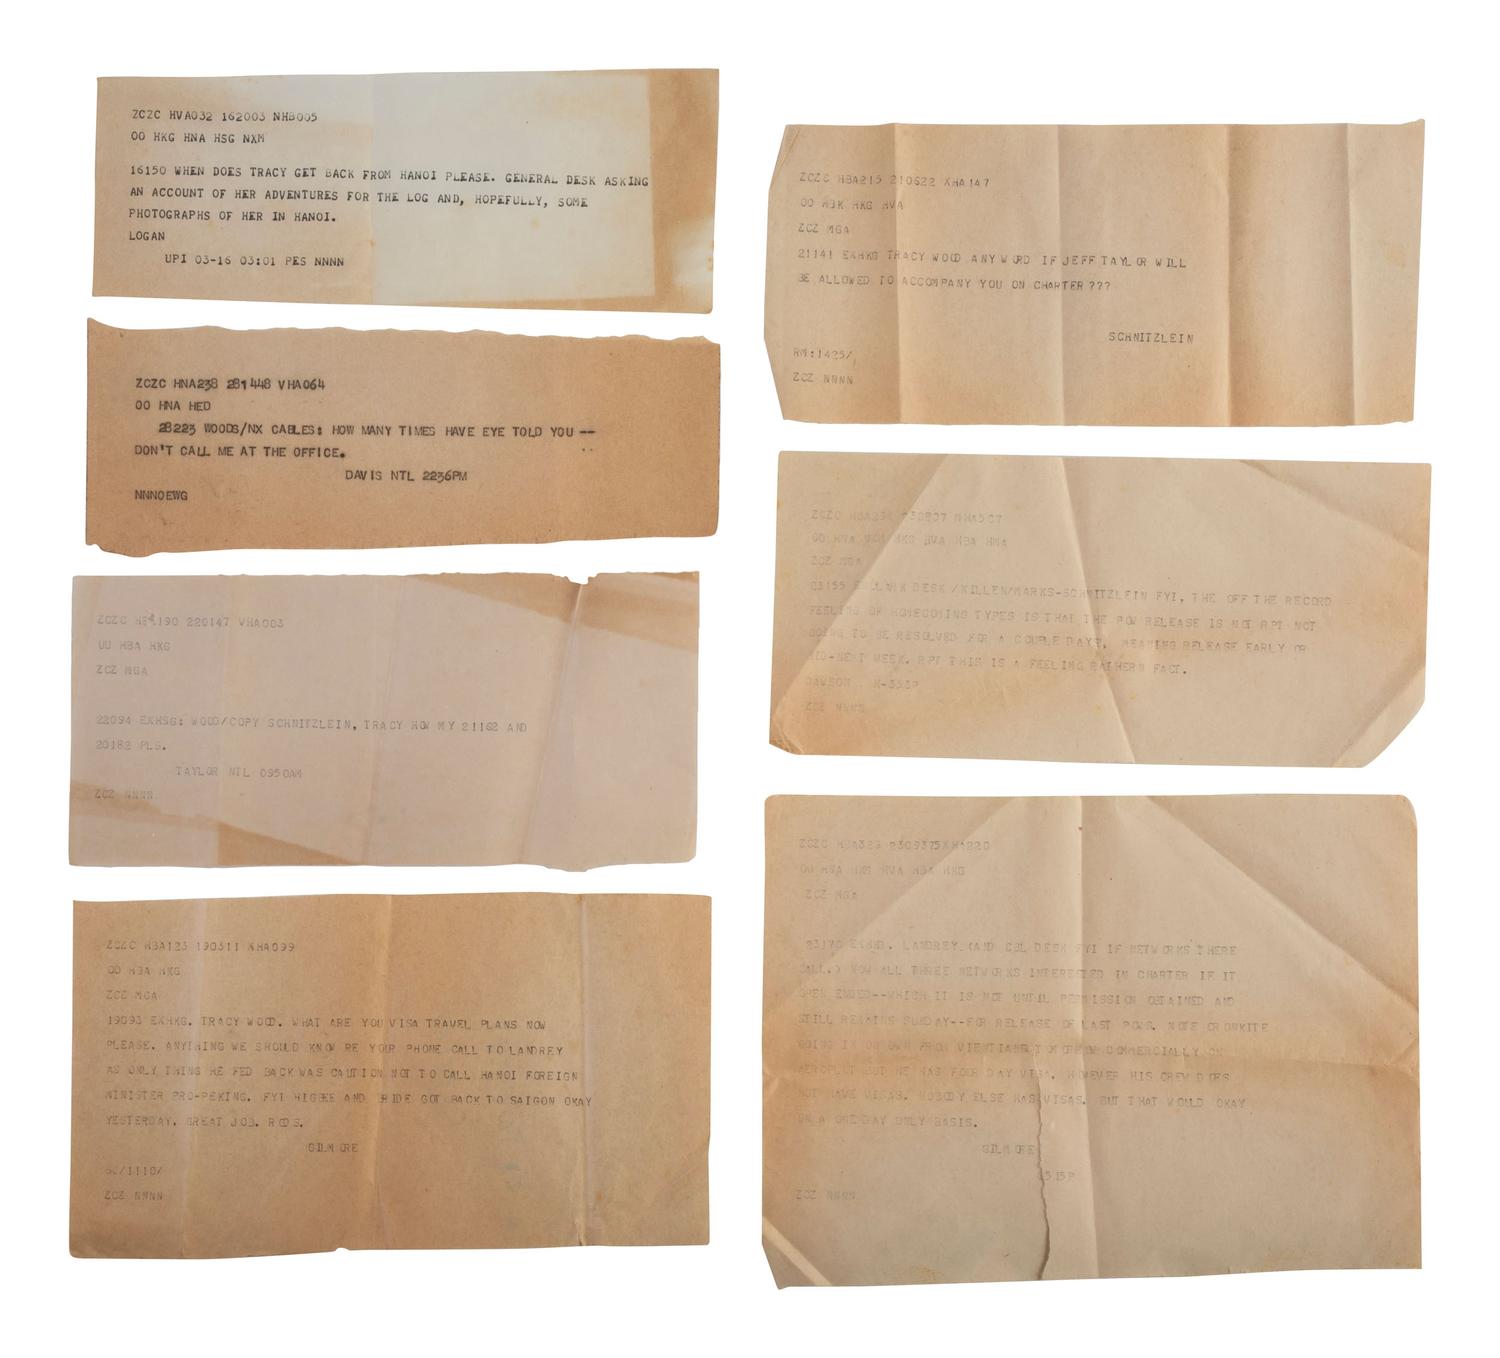 ZCZC HVA032 162003 NHB005
OO HKG HNA HSG NXM
16150 WHEN DOES TRACY GET BACK FROM HANOI PLEASE. GENERAL DESK ASKING
AN ACCOUNT OF HER ADVENTURES FOR THE LOG AND, HOPEFULLY, SOME
PHOTOGRAPHS OF HER IN HANOI.
LOGAN
UPI 03-16 03:01 PES NNNN
ZCZC HNA238 281448 VHA064
OO HNA HED
28223 WOODS/NX CABLES: HOW MANY TIMES HAVE EYE TOLD YOU --
DON'T CALL ME AT THE OFFICE.
DAVIS NTL 2236PM
NNNOEWG
ZCZC 190 220147 VHA003
UU HBA HKG
ZCZ MGA
22094 EXHSG: WOOD/COPY SCHNITZLEIN, TRACY HOW MY 21162 AND
20182 PLS.
TAYLOR NTL 0950AM
ZCZ NNNN
ZCZC HBA123 190311 XHA099
OO HBA HKG
ZCZ MGA
19093 EXHKG. TRACY WOOD. WHAT ARE YOU VISA TRAVEL PLANS NOW
PLEASE. ANYTHING WE SHOULD KNOW RE YOUR PHONE CALL TO LANDREY
AS ONLY THING HE FED BACK WAS CAUTION NOT TO CALL HANOI FOREIGN
MINISTER PRO-PEKING. FYI HIGBEE AND BRIDE GOT BACK TO SAIGON OKAY
YESTERDAY. GREAT JOB. RGDS.
GILMORE
/1110/
ZCZ NNNN
ZCZC HBA215 210622 XHA147
OO HBK HKG HVA
ZCZ MGA
21141 EXHKG TRACY WOOD ANY WORD IF JEFF TAYLOR WILL
BE ALLOWED TO ACCOMPANY YOU ON CHARTER???
SCHNITZLEIN
RM:1425/
ZCZ NNNN
ZCZC 230807 NHA507
OO HNA NXM HKG HVA HBA HMA
ZCZ MGA
23155 CLARK DESK/KILLEN/MARKS-SCHNITZLEIN FYI, THE OFF THE RECORD
FEELING OF HOMECOMING TYPES IS THAT THE POW RELEASE IS NOT RPT NOT
GOING TO BE RESOLVED FOR A COUPLE DAYS, MEANING RELEASE EARLY OR
MID-NEXT WEEK. RPT THIS IS A FEELING RATHERN FACT.
DAWSON
ZCZ NNNN
ZCZC HBA329 XHA220
OO HNA HKG HVA HBA HKG
ZCZ MGA
23170 LANDREY. (AND CBL DESK FYI IF NETWORKS THERE
CALL.) NOW ALL THREE NETWORKS INTERESTED IN CHARTER IF IT
OPEN ENDED--WHICH IT IS NOT UNTIL PERMISSION OBTAINED AND
STILL REMAINS SUNDAY--FOR RELEASE OF LAST POWS. NOTE CRONKITE
GOING IN ON OWN FROM VIENTIANE TOMORROW COMMERCIALLY ON
AEROFLOT BUT HE HAS FOUR DAY VISA. HOWEVER HIS CREW DOES
NOT HAVE VISAS. NOBODY ELSE HAS VISAS. BUT THAT WOULD OKAY
ON A ONE DAY ONLY BASIS.
GILMORE
515P
ZCZ NNNN